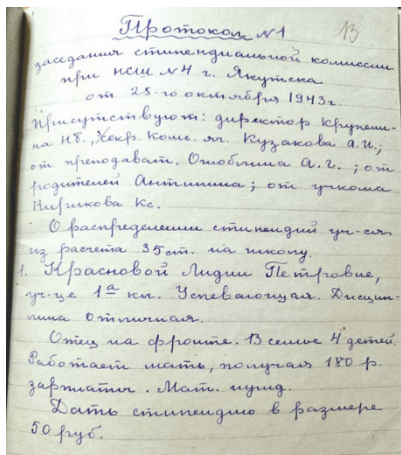 Протокол №1
13
заседания стипендиальной комиссии
при НСШ №4 г. Якутска
от 25-го октября 1943 г.
Присутствуют: директор Крупени-
на Н.Б., секр. комс. яч. Кузакова А.И.;
от преподават. А.Г.; от
родителей Антипина; от учкома
Кирикова Кс.
О распределении стипендий уч-ся
из расчета 35 ст. на школу.
1. Красновой Лидии Петровне,
уч-це 1а кл. Успевающая. Дисцип-
лина отличная.
Отец на фронте. В семье 4 детей.
Работает мать, получая 180 р.
зарплаты. Мат. нужд.
Дать стипендию в размере
50 руб.